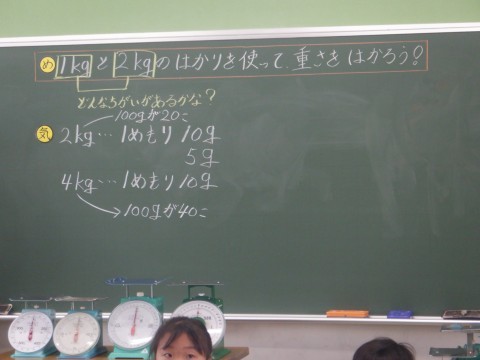 め 1kgと2kgのはかりを使って、重さをはかろう!
どんなちがいがあるかな?
100gが20こ
気 2kg…1めもり10g
5g
4kg…1めもり10g
100gが40こ